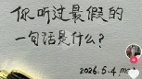 你听过最假的
一句话是什么?
2026.5.4